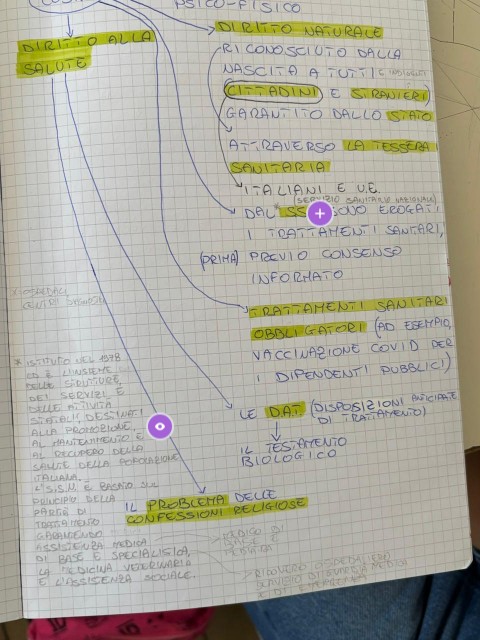 PSICO-FISICO
DIRITTO ALLA
SALUTE
DIRITTO NATURALE
RICONOSCIUTO DALLA
NASCITA A TUTTI E
CITTADINI E STRANIERI
GARANTITO DALLO STATO
ATTRAVERSO LA TESSERA
SANITARIA
ITALIANI E U.E.
(SERVIZIO SANITARIO NAZIONALE)
DAL SONO EROGATI
I TRATTAMENTI SANITARI,
(PRIMA) PREVIO CONSENSO
INFORMATO
TRATTAMENTI SANITARI
OBBLIGATORI (AD ESEMPIO,
VACCINAZIONE COVID PER
I DIPENDENTI PUBBLICI)
LE DAT (DISPOSIZIONI ANTICIPATE
DI TRATTAMENTO)
IL TESTAMENTO
BIOLOGICO
IL PROBLEMA DELLE
CONFESSIONI RELIGIOSE
OSPEDALI,
CENTRI
* ISTITUITO NEL 1978
ED È L'INSIEME
DELLE STRUTTURE,
DEI SERVIZI E
DELLE ATTIVITÀ
STATALI DESTINATI
ALLA PROMOZIONE,
AL MANTENIMENTO E
AL RECUPERO DELLA
SALUTE DELLA POPOLAZIONE
ITALIANA.
L'S.S.N. È BASATO SUL
PRINCIPIO DELLA
PARITÀ DI
TRATTAMENTO
GARANTENDO
ASSISTENZA MEDICA
DI BASE E SPECIALISTICA,
LA MEDICINA VETERINARIA
E L'ASSISTENZA SOCIALE.
MEDICO DI
BASE E
RICOVERO OSPEDALIERO
SERVIZIO DI GUARDIA MEDICA
E DI EMERGENZA